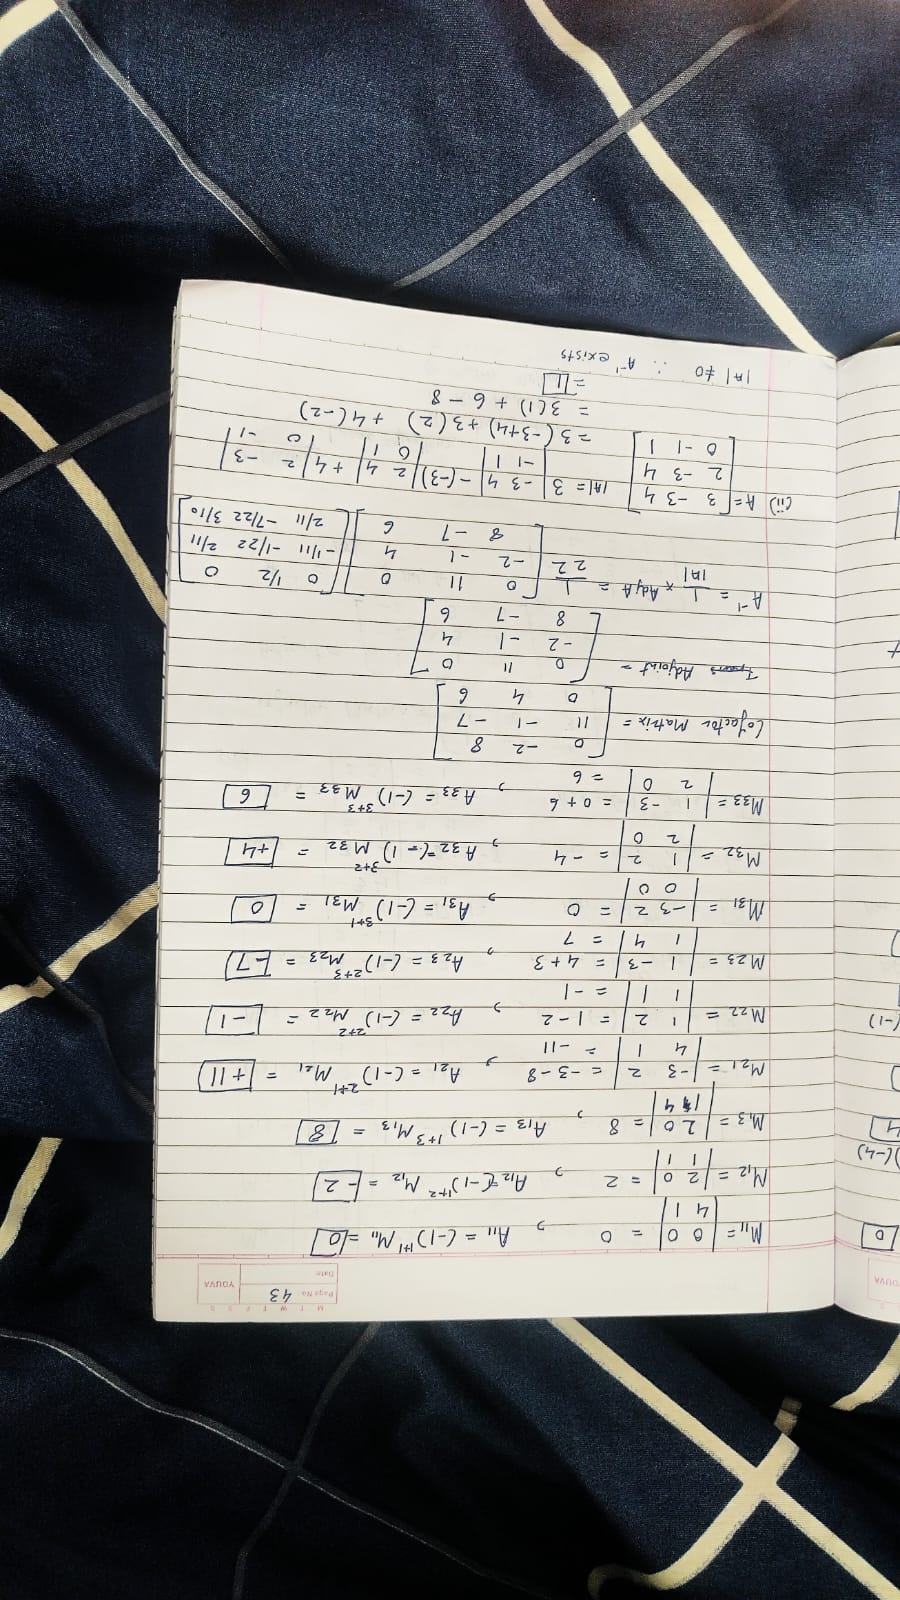 M T W T F S S
Page No. 43
YOUVA
Date:
YOUVA
0
)(-4)
4
(-1)
M₁₁ = |0 0; 4 1| = 0 , A₁₁ = (-1)¹⁺¹ M₁₁ = 0
M₁₂ = |2 0; 1 1| = 2 , A₁₂ = (-1)¹⁺² M₁₂ = -2
M₁₃ = |2 0; 1 4| = 8 , A₁₃ = (-1)¹⁺³ M₁₃ = 8
M₂₁ = |-3 2; 4 1| = -3-8 , A₂₁ = (-1)²⁺¹ M₂₁ = +11
= -11
M₂₂ = |1 2; 1 1| = 1-2 , A₂₂ = (-1)²⁺² M₂₂ = -1
= -1
M₂₃ = |1 -3; 1 4| = 4+3 , A₂₃ = (-1)²⁺³ M₂₃ = -7
= 7
M₃₁ = |-3 2; 0 0| = 0 , A₃₁ = (-1)³⁺¹ M₃₁ = 0
M₃₂ = |1 2; 2 0| = -4 , A₃₂ = (-1)³⁺² M₃₂ = +4
M₃₃ = |1 -3; 2 0| = 0+6 , A₃₃ = (-1)³⁺³ M₃₃ = 6
= 6
Cofactor Matrix = [0 -2 8; 11 -1 -7; 0 4 6]
Trans Adjoint = [0 11 0; -2 -1 4; 8 -7 6]
A⁻¹ = 1/|A| × AdjA = 1/22 [0 11 0; -2 -1 4; 8 -7 6] [0 1/2 0; -1/11 -1/22 2/11; 2/11 -7/22 3/10]
(ii) A = [3 -3 4; 2 -3 4; 0 -1 1] |A| = 3 |-3 4; -1 1| -(-3) |2 4; 0 1| +4 |2 -3; 0 -1|
= 3(-3+4) +3(2) +4(-2)
= 3(1) + 6 - 8
= 1
|A| ≠0 ∴ A⁻¹ exists